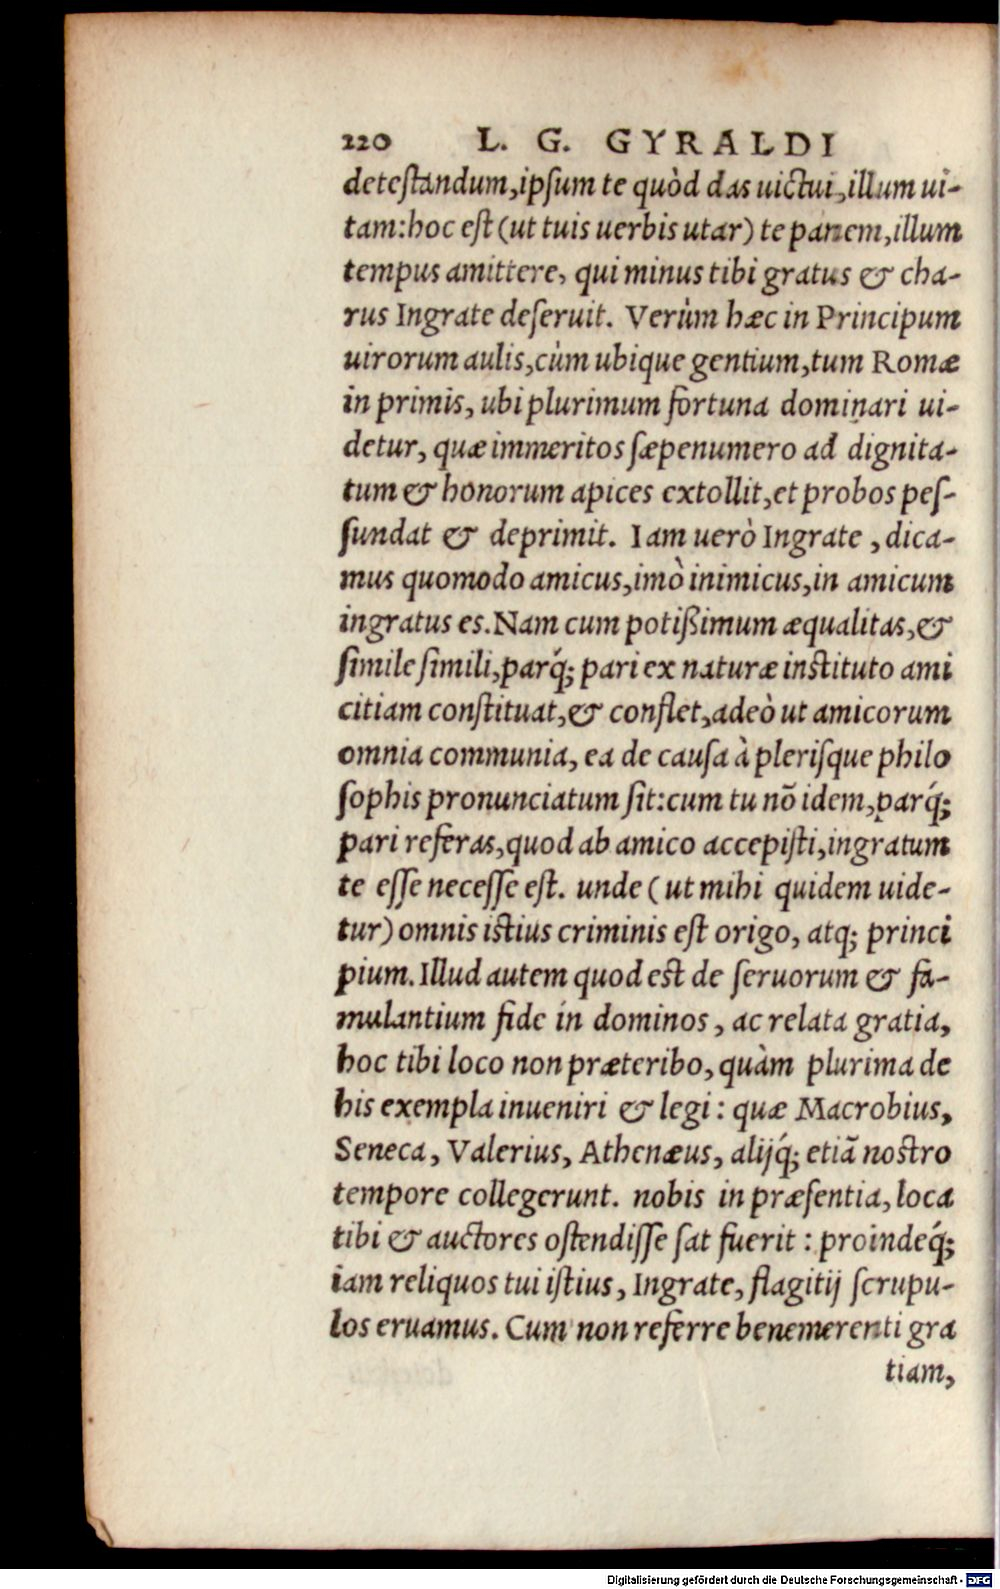 220 L. G. GYRALDI
deteſtandum,ipſum te quòd das uictui,illum ui-
tam:hoc eſt (ut tuis uerbis utar) te panem,illum
tempus amittere, qui minus tibi gratus & cha-
rus Ingrate deſeruit. Verùm hæc in Principum
uirorum aulis,cùm ubique gentium,tum Romæ
in primis, ubi plurimum fortuna dominari ui-
detur, quæ immeritos ſæpenumero ad dignita-
tum & honorum apices extollit,et probos peſ-
ſundat & deprimit. Iam uerò Ingrate , dica-
mus quomodo amicus,imò inimicus,in amicum
ingratus es.Nam cum potißimum æqualitas,&
ſimile ſimili,parq́; pari ex naturæ inſtituto ami
citiam conſtituat,& conflet,adeò ut amicorum
omnia communia, ea de cauſa à pleriſque philo
ſophis pronunciatum ſit:cum tu nō idem,parq́;
pari referas,quod ab amico accepiſti,ingratum
te eſſe neceſſe eſt. unde ( ut mihi quidem uide-
tur) omnis iſtius criminis eſt origo, atq; princi
pium. Illud autem quod eſt de ſeruorum & fa-
mulantium fide in dominos , ac relata gratia,
hoc tibi loco non præteribo, quàm plurima de
his exempla inueniri & legi : quæ Macrobius,
Seneca, Valerius, Athenæus, alijq́; etiā noſtro
tempore collegerunt. nobis in præſentia, loca
tibi & auctores oſtendiſſe ſat fuerit : proindeq́;
iam reliquos tui iſtius, Ingrate, flagitij ſcrupu-
los eruamus. Cum non referre benemerenti gra
tiam,
Digitalisierung gefördert durch die Deutsche Forschungsgemeinschaft - DFG